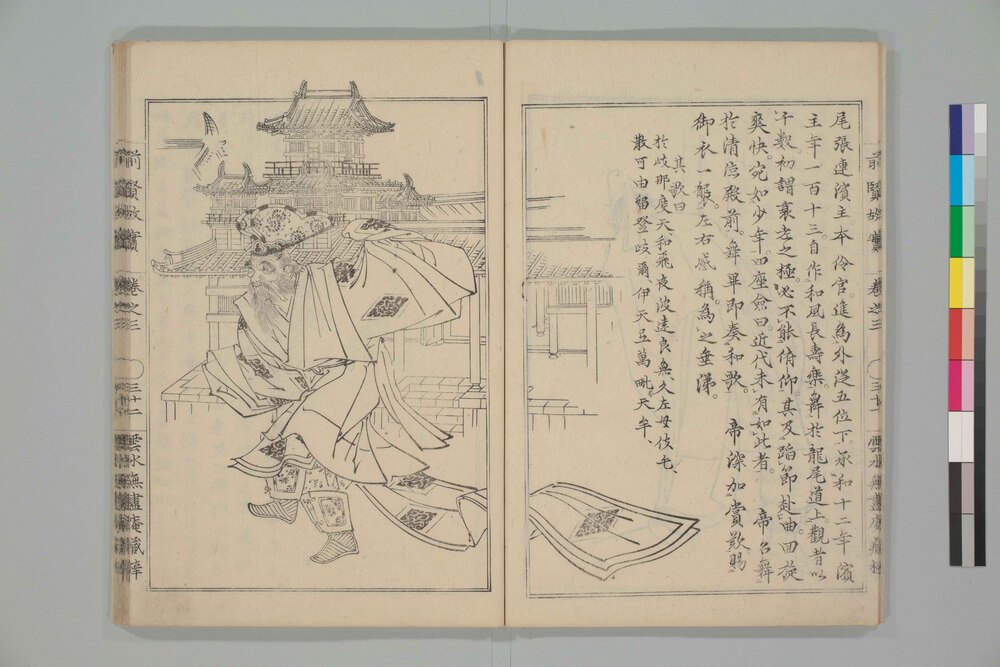 尾張連濱主本伶官。進為外從五位下。承和十二年濱
主年一百十三自作和風長壽樂。舞於龍尾道上。觀者以
千數初謂衰老之極必不能倚仰。其及蹈節赴曲回旋
爽快。宛如少年。四座僉曰近代未有如此者。帝召舞
於清凉殿前。舞畢即奏和歌。帝深加賞歎賜
御衣一襲。左右感稱。為之垂涕。
其歌曰
於岐那度天和飛夜波遠良無久左母伎毛、
散可由留登岐爾伊天弖萬毗天牟、
前賢故實 卷之三 三十二 雲水無盡庵藏梓
前賢故實 卷之三 雲水無盡庵藏梓